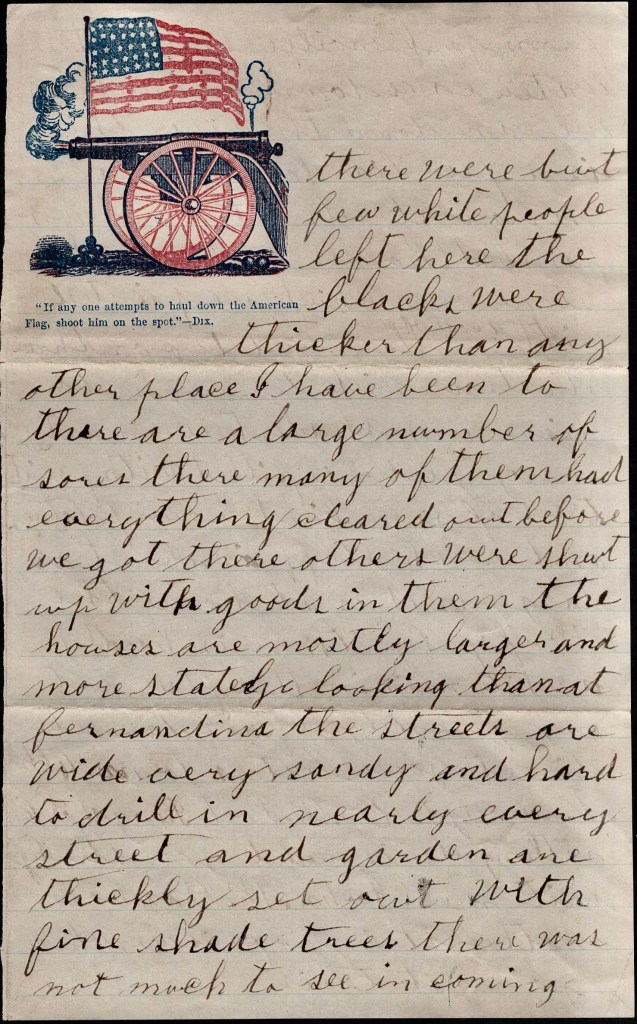 "If any one attempts to haul down the American
Flag, shoot him on the spot."—Dix.
there were but
few white people
left here the
blacks were
thicker than any
other place I have been to
there are a large number of
sores there many of them had
everything cleared out before
we got there others were shut
up with goods in them the
houses are mostly larger and
more stately looking than at
fernandina the streets are
wide very sandy and hard
to drill in nearly every
street and garden are
thickly set out with
fine shade trees there was
not much to see in coming